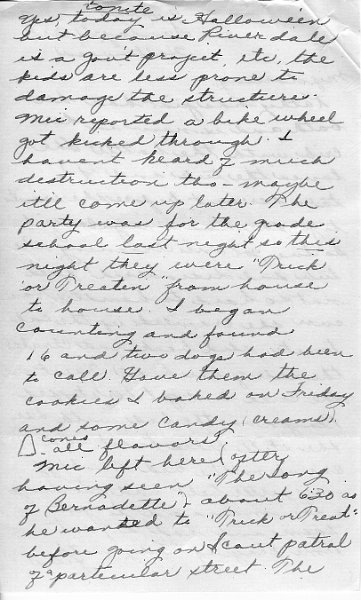 tonite
Yes, today is Halloween
but because Riverdale
is a gov't project, etc, the
kids are less prone to
damage the structures.
Mic reported a bike wheel
got kicked through. I
havent heard of much
destruction tho - maybe
it'll come up later. The
party was for the grade
school last night so this
night they were "Trick
or Treaten" from house
to house. I began
counting and found
16 and two dogs had been
to call. Gave them the
cookies I baked on Friday
and some candy (creams).
cones all flavors.
Mic left here (after
having seen "The Song
of Bernadette") about 6:30 as
he wanted to "Trick or Treat"
before going on Scout patrol
of a particular street. The